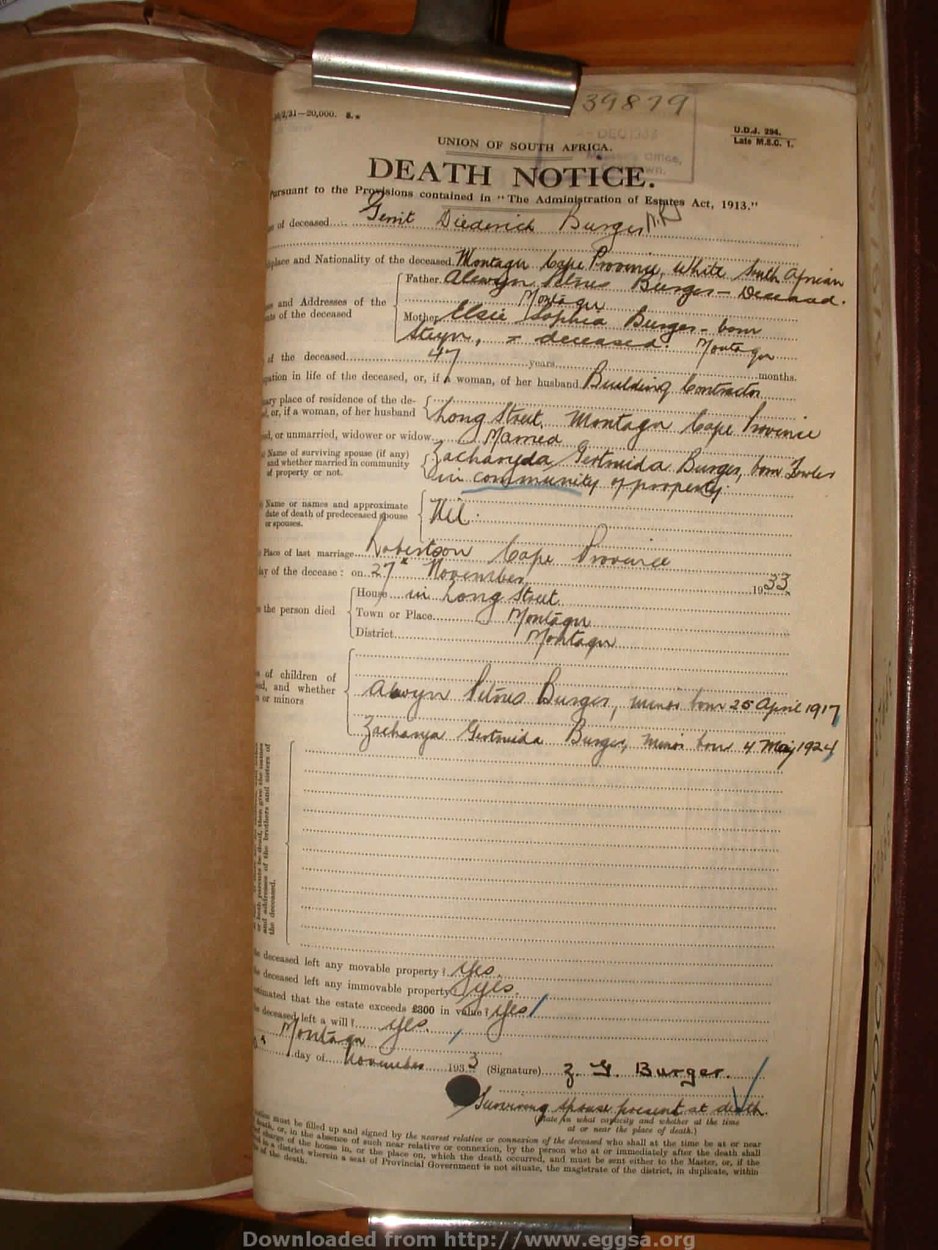 39879
2/31—20,000. S.
U.D.J. 294.
Late M.S.C. 1.
DEC 1933
Office,
UNION OF SOUTH AFRICA.
DEATH NOTICE.
Pursuant to the Provisions contained in "The Administration of Estates Act, 1913."
of deceased Gerrit Diederick Burger
place and Nationality of the deceased Montagu Cape Province, White South African
and Addresses of the
of the deceased
Father Alewyn Petrus Burger – Deceased.
Montagu
Mother Elsie Sophia Burger – born
Steyn, deceased. Montagu
of the deceased 47 years months.
in life of the deceased, or, if a woman, of her husband Building Contractor
place of residence of the de-
or, if a woman, of her husband
Long Street, Montagu Cape Province
or unmarried, widower or widow Married
Name of surviving spouse (if any)
and whether married in community
of property or not.
Gertruida Burger, born
in community of property.
Name or names and approximate
date of death of predeceased spouse
or spouses.
Nil.
Place of last marriage Robertson Cape Province
of the decease: on 27th November 1933
the person died
House in Long Street
Town or Place Montagu
District Montagu
of children of
and whether
or minors
Alewyn Petrus Burger, minor born 25 April 1917
Gertruida Burger, minor born 4 May 1924
and addresses of the brothers and sisters of
the deceased.
deceased left any movable property? Yes.
deceased left any immovable property? Yes.
that the estate exceeds £300 in value? Yes
deceased left a will? Yes.
Montagu
day of November 1933 (Signature) Z. G. Burger.
Surviving spouse present at death.
(State in what capacity and whether at the time
at or near the place of death.)
must be filled up and signed by the nearest relative or connexion of the deceased who shall at the time be at or near
death, or, in the absence of such near relative or connexion, by the person who at or immediately after the death shall
charge of the house in, or the place on, which the death occurred, and must be sent either to the Master, or, if the
a district wherein a seat of Provincial Government is not situate, the magistrate of the district, in duplicate, within
of the death.
Downloaded from http://www.eggsa.org